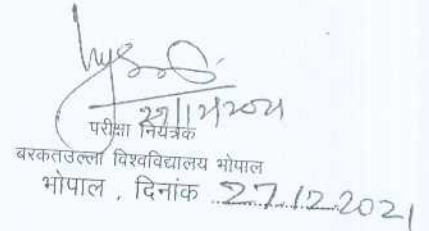 परीक्षा नियंत्रक
बरकतउल्ला विश्वविद्यालय भोपाल
भोपाल , दिनांक 27.12.2021